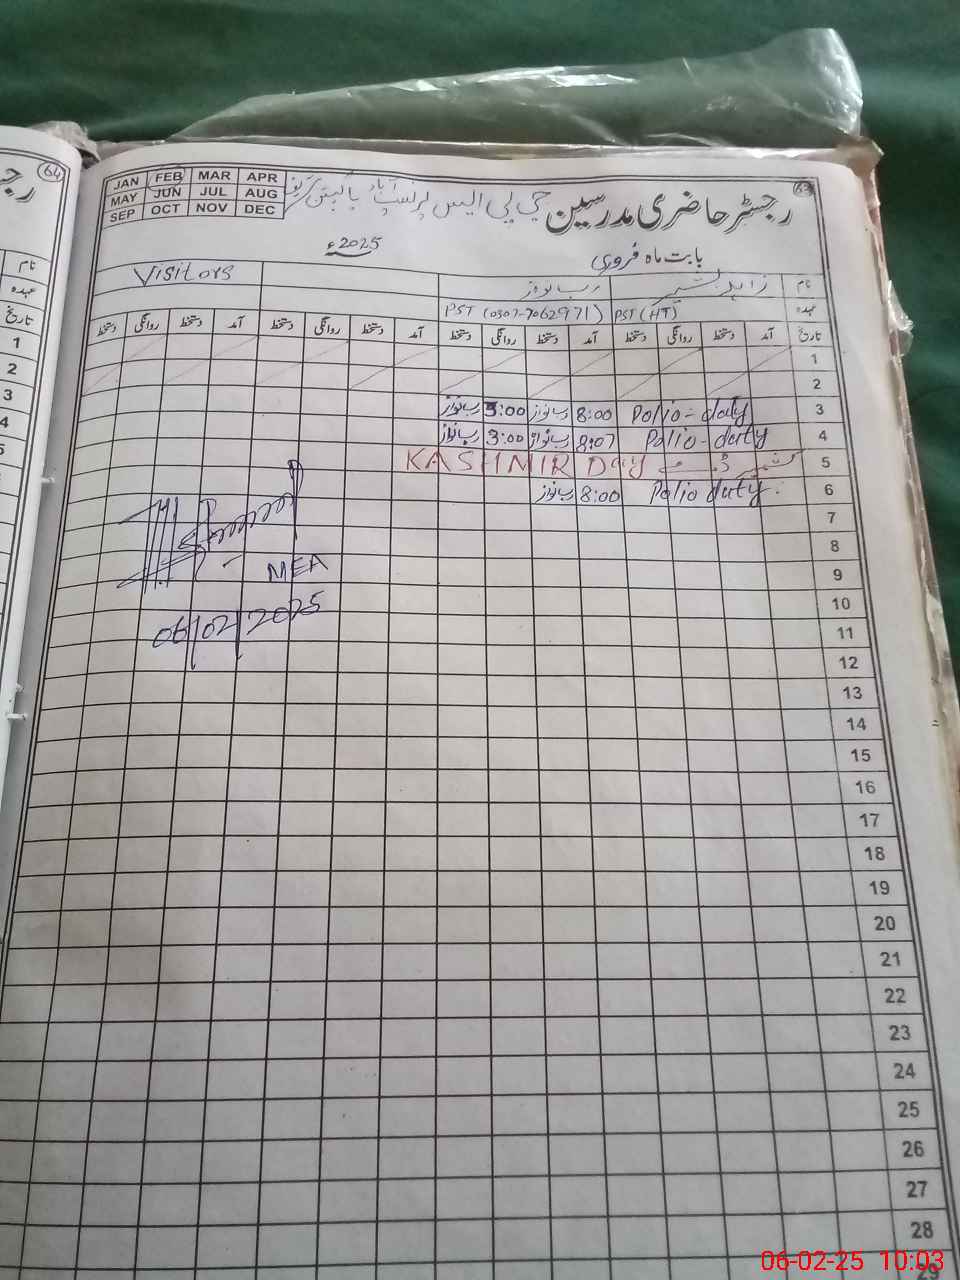 64
JAN FEB MAR APR
MAY JUN JUL AUG
SEP OCT NOV DEC
63
رجسٹر حاضری مدرسین جی پی ایس پرنسپ آباد پاکپتن شریف
بابت ماہ فروری 2025ء
نام زاہد بشیر رب نواز Visitors
عہدہ PST (HT) PST (0307-7062971)
تاریخ آمد دستخط روانگی دستخط آمد دستخط روانگی دستخط آمد دستخط روانگی دستخط آمد دستخط روانگی دستخط
1
2
3 Polio-duty 8:00 رب نواز 3:00 رب نواز
4 Polio-duty 8:07 رب نواز 3:00 رب نواز
5 کشمیر ڈے KASHMIR Day
6 Polio duty. 8:00 رب نواز
7
8
9
10
11
12
13
14
15
16
17
18
19
20
21
22
23
24
25
26
27
28
29
MEA
06/02/2025
نام
عہدہ
تاریخ
1
2
3
4
5
6
06-02-25 10:03